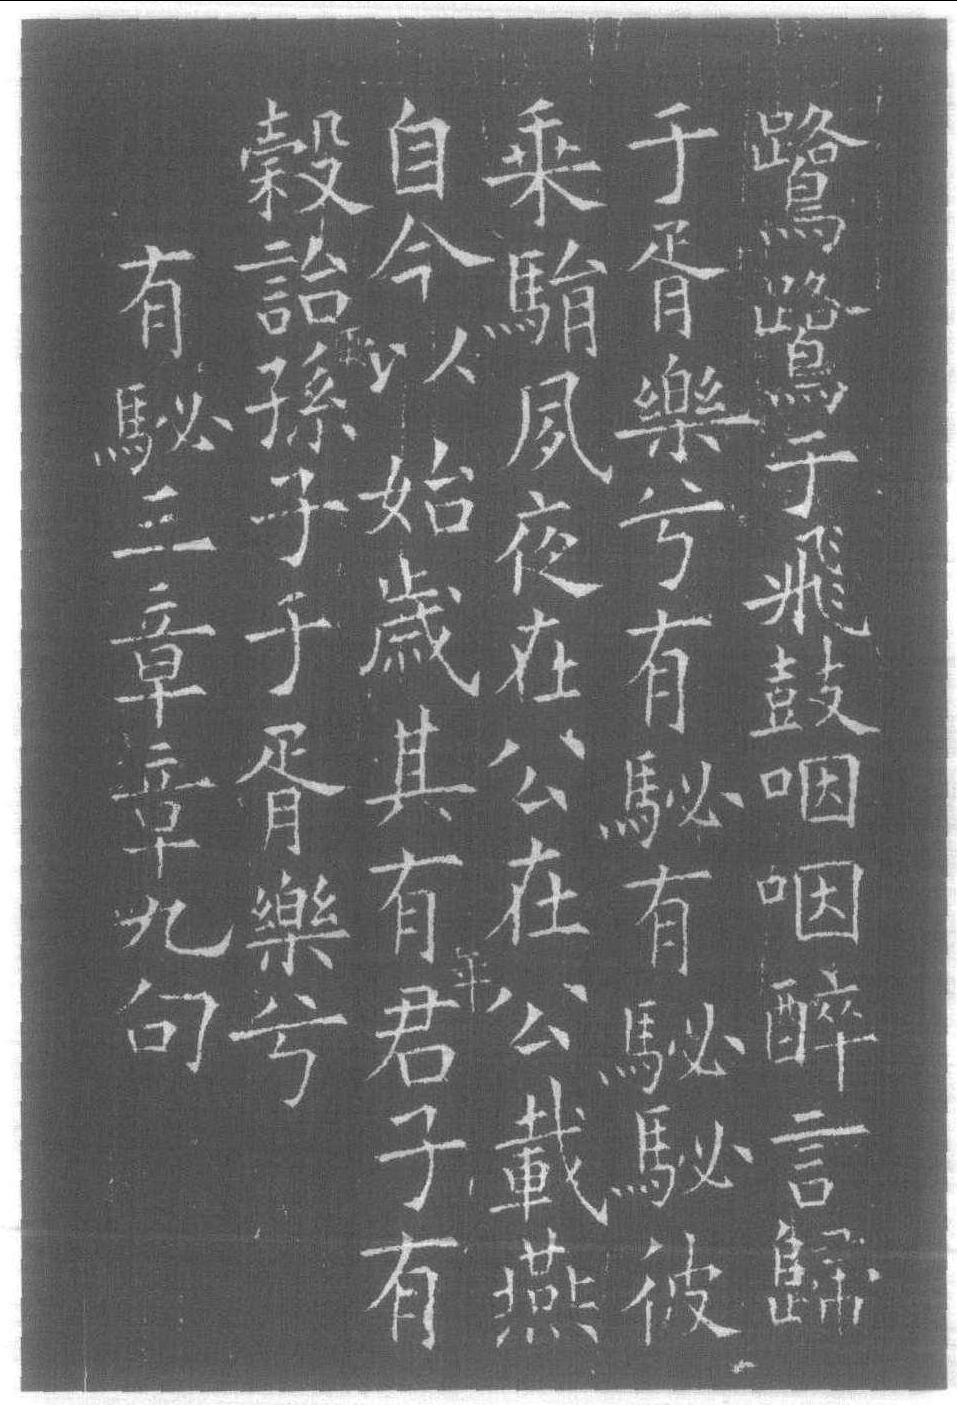 鷺鷺于飛鼓咽咽醉言歸
于胥樂兮有駜有駜駜彼
乗駽夙夜在公在公載燕
自今以始歲其有君子有
穀詒孫子于胥樂兮
有駜三章章九句